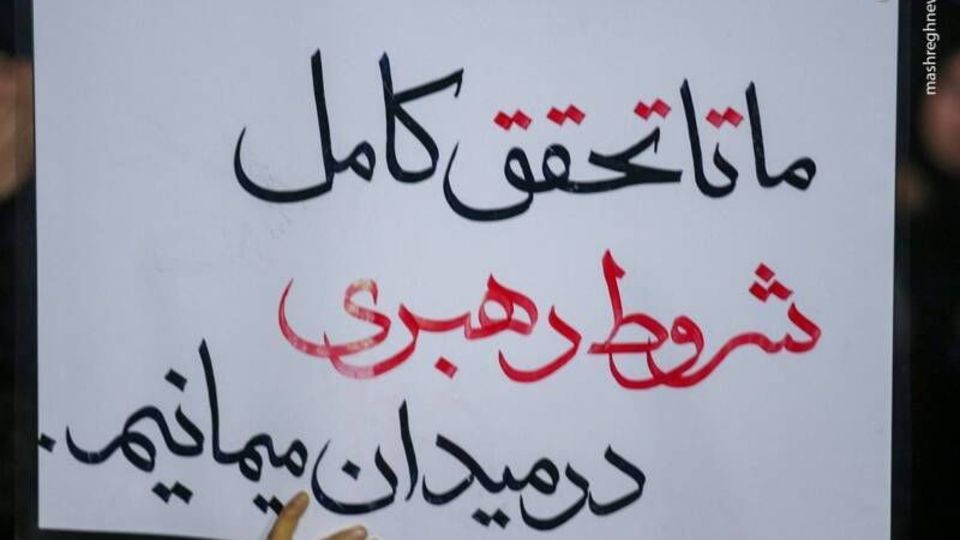 ما تا تحقق کامل
شروط رهبری
در میدان میمانیم.
mashreghnew